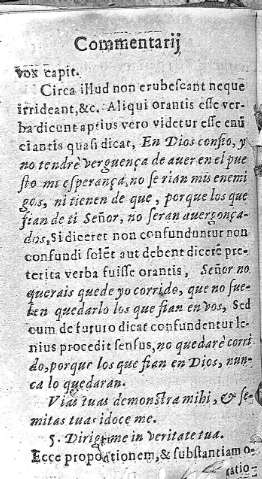 Commentarij
vox capit.
Circa illud non erubescant neque
irrideant,&c. Aliqui orantis esse ver-
ba dicunt aptius vero videtur esse enū
ciantis quasi dicat, En Dios confio, y
no tendrè verguença de auer en el pue
sto mi esperança, no se rian mis enemi
gos, ni tienen de que, porque los que
fian de ti Señor, no seran auergonça-
dos, Si diceret non confunduntur non
confundi solēt aut debent dicere pre-
terita verba fuisse orantis, Señor no
querais quede yo corrido, que no sue-
len quedarlo los que fian en vos, Sed
cum de futuro dicat confundentur le-
nius procedit sensus, no quedarè corri
do, porque los que fian en Dios, nun-
ca lo quedaran.
Vias tuas demonstra mihi, & se-
mitas tuas edoce me.
5. Dirige me in veritate tua.
Ecce propositionem, & substantiam o-
ratio-